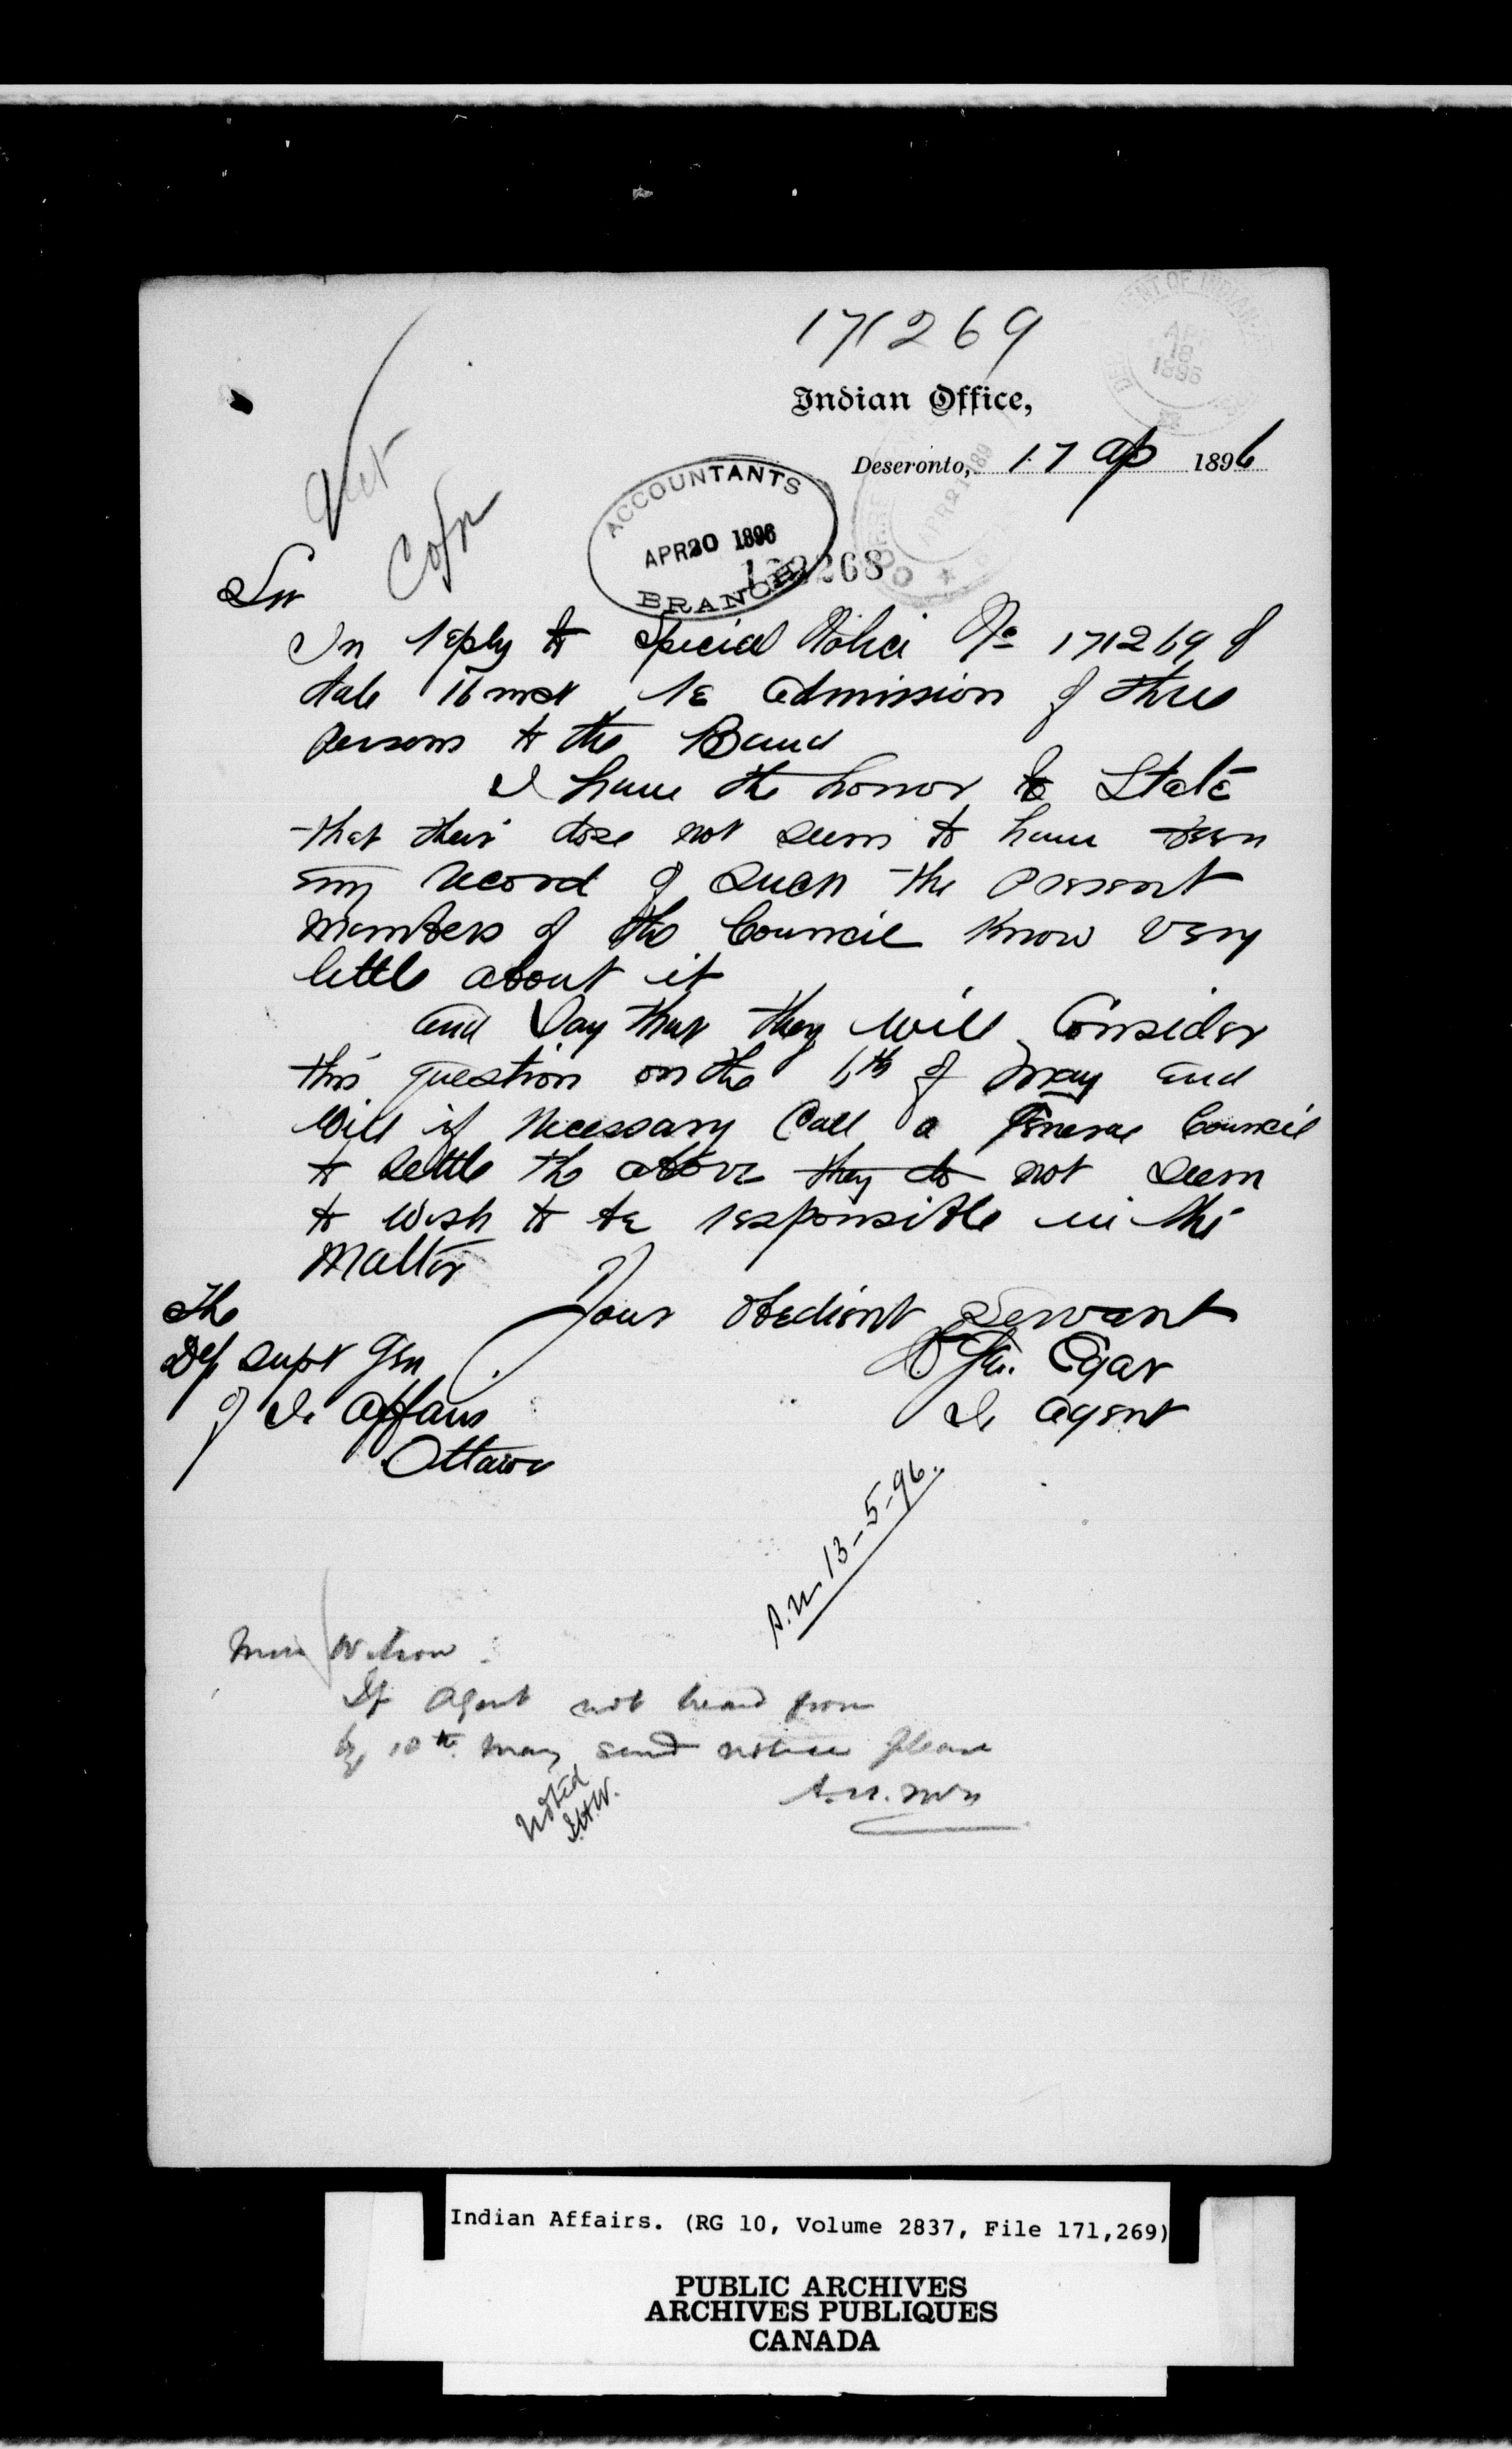 171269
DEPARTMENT OF INDIAN AFFAIRS
APR
18
1896
Indian Office,
Deseronto, 17 Ap 1896
ACCOUNTANTS
APR 20 1896
BRANCH
268
Sir
In reply to Special Notice No 171269 of
date 16 inst re admission of three
persons to the Band
I have the honor to State
that their dose not seem to have been
any record of such the present
members of the Council Know very
little about it
and Say that they will Consider
this question on the 6th of May and
Will if Necessary Call a General Council
to settle the above they do not seem
to Wish to be responsible in the
Matter
Your obedient Servant
The
Dep Supt Gen
of I. Affairs
Ottawa
Wm. Egar
I. Agent
A.N. 13-5-96.
Miss Wilson:
If Agent not heard from
by 10th May send notice please
Noted
Indian Affairs. (RG 10, Volume 2837, File 171,269)
PUBLIC ARCHIVES
ARCHIVES PUBLIQUES
CANADA